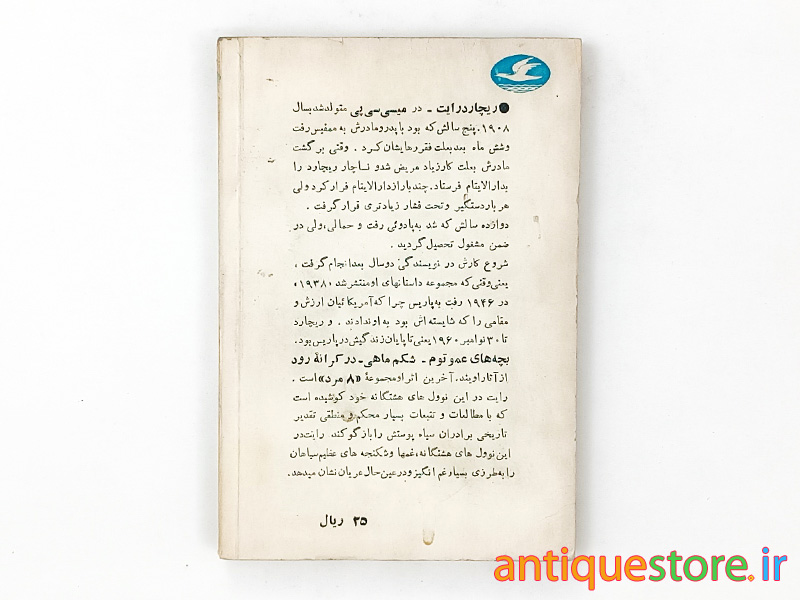 ● ریچارد رایت - در میسی سی پی متولد شد بسال
۱۹۰۸. پنج سالش که بود با پدر و مادرش به ممفیس رفت
وشش ماه بعد بعلت فقر رهایشان کرد . وقتی برگشت
مادرش بعلت کار زیاد مریض شد و ناچار ریچارد را
بدار الایتام فرستاد. چند بار از دار الایتام فرار کرد ولی
هر بار دستگیر و تحت فشار زیادتری قرار گرفت .
دوازده سالش که شد به پادوئی رفت و حمالی، ولی در
ضمن مشغول تحصیل گردید .
شروع کارش در نویسندگی دو سال بعد انجام گرفت ،
یعنی وقتی که مجموعه داستانهای او منتشر شد «۱۹۳۸»
در ۱۹۴۶ رفت به پاریس چرا که آمریکائیان ارزش و
مقامی را که شایسته اش بود به او ندادند . و ریچارد
تا ۳۰ نوامبر ۱۹۶۰ یعنی تا پایان زندگیش در پاریس بود.
بچه های عمو توم - شکم ماهی - در کرانهٔ رود
از آثار اویند. آخرین اثر او مجموعهٔ «۸ مرد» است .
رایت در این نوول های هشتگانه خود کوشیده است
که با مطالعات و تتبعات بسیار محکم و منطقی تقدیر
تاریخی برادران سیاه پوستش را بازگو کند رایت در
این نوول های هشتگانه، غمها و شکنجه های عظیم سیاهان
را به طرزی بسیار غم انگیز و در عین حال عریان نشان میدهد.
۳۵ ریال
antiquestore.ir